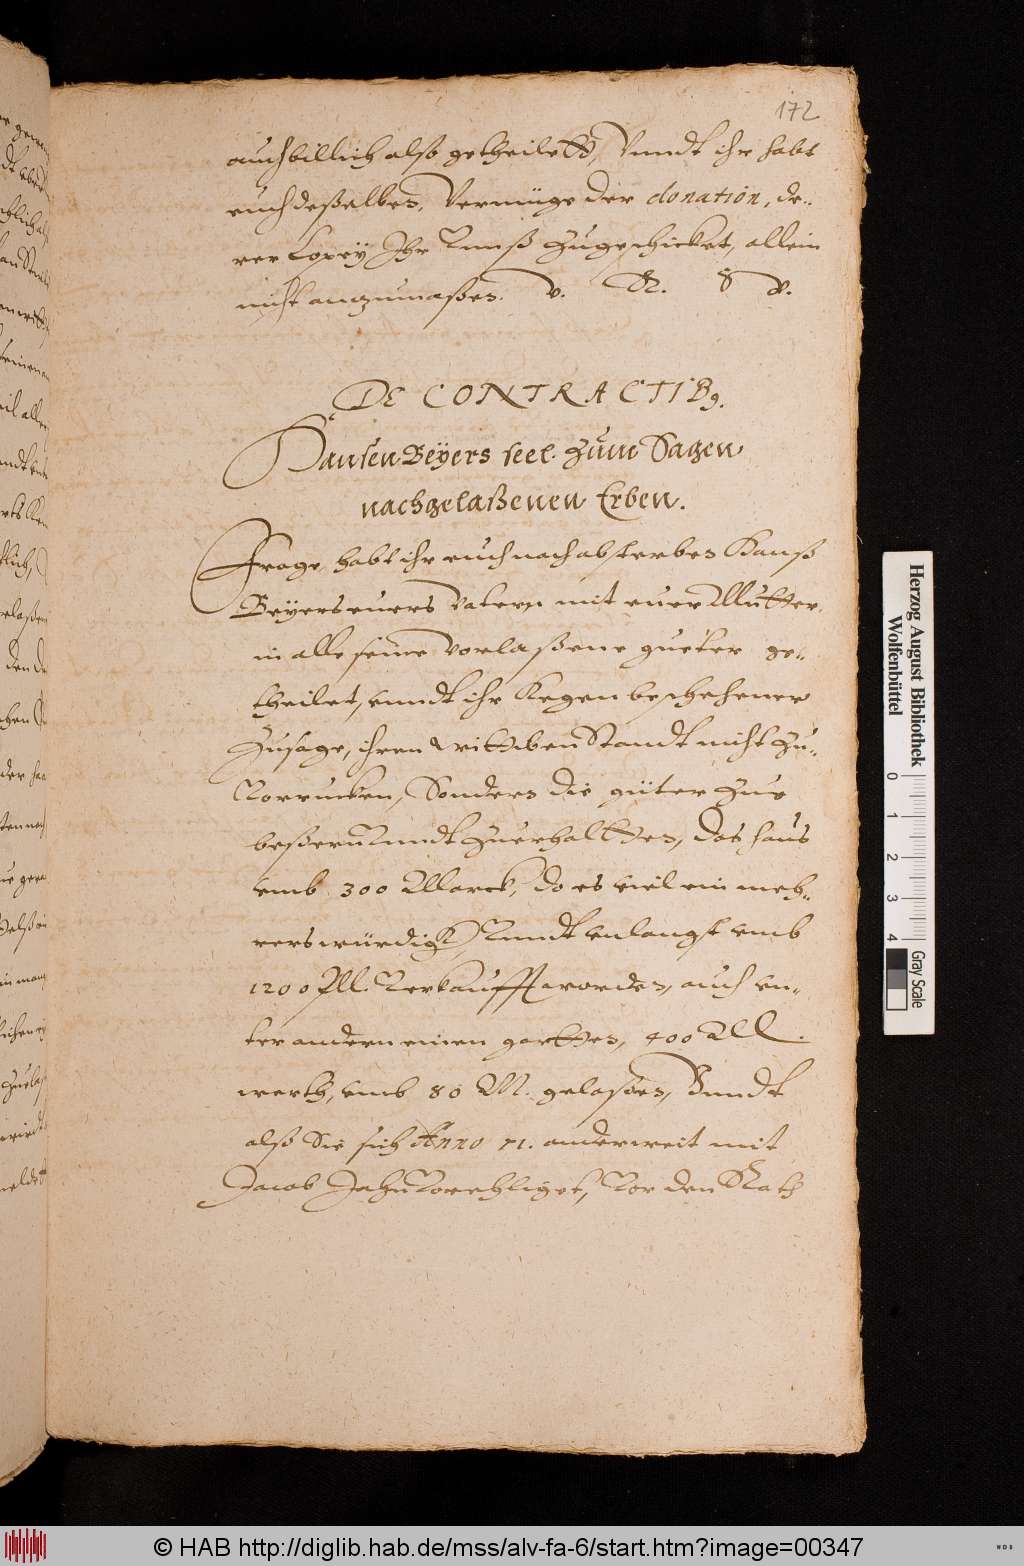 172
auch billich also getheilett, Vnndt ihr habt
euch deßelben, Vermüge der donation, de-
rer Copey Ihr Vnnß zugeschicket, allein
nicht anzumaßen. v. R. W.
DE CONTRACTIB9.
Hansen Beÿers seel. zum Sagen
nachgelaßenen Erben.
Frage, habt ihr euch nach absterben Hanß
Beÿers euers Vatern mit euer Mutter,
in alle seine Vorlaßene gueter ge-
theilet, vnndt ihr Kegen beschehener
Zusage, ihren wittiben Standt nicht zu-
Vorrucken, Sondern die güter zue
beßern Vnndt zuerhaltten, das haus
vmb 300 Marck, do es viel ein meh-
rers würdig, Vnndt vnlangst vmb
1200 fll. Verkaufft worden, auch vn-
ter andern einen gartten, 400 Mll.
werth, vmb 80 M. gelaßen, Vnndt
alß Sie sich Anno 71. anderweit mit
Jacob Jahn Vorehliget, Vor den Rath
Herzog August Bibliothek
Wolfenbüttel
0 1 2 3 4
Gray Scale
© HAB http://diglib.hab.de/mss/alv-fa-6/start.htm?image=00347
WDB